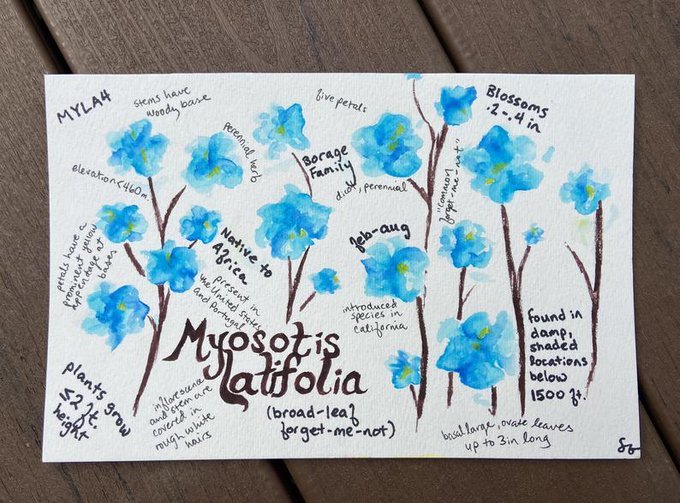 MYLA4
stems have
woody base
five petals
Blossoms
.2-.4 in
perennial herb
Borage
Family
dicot, perennial
"common
forget-me-not"
elevation<460m
petals have a
prominent yellow
appendage at
bases
Native to
Africa
present in
the United States
and Portugal
feb-aug
introduced
species in
california
Myosotis
latifolia
(broad-leaf
forget-me-not)
found in
damp,
shaded
locations
below
1500 ft.
plants grow
≤2 ft.
height
inflorescence
and stem are
covered in
rough white
hairs
basal large, ovate leaves
up to 3in long